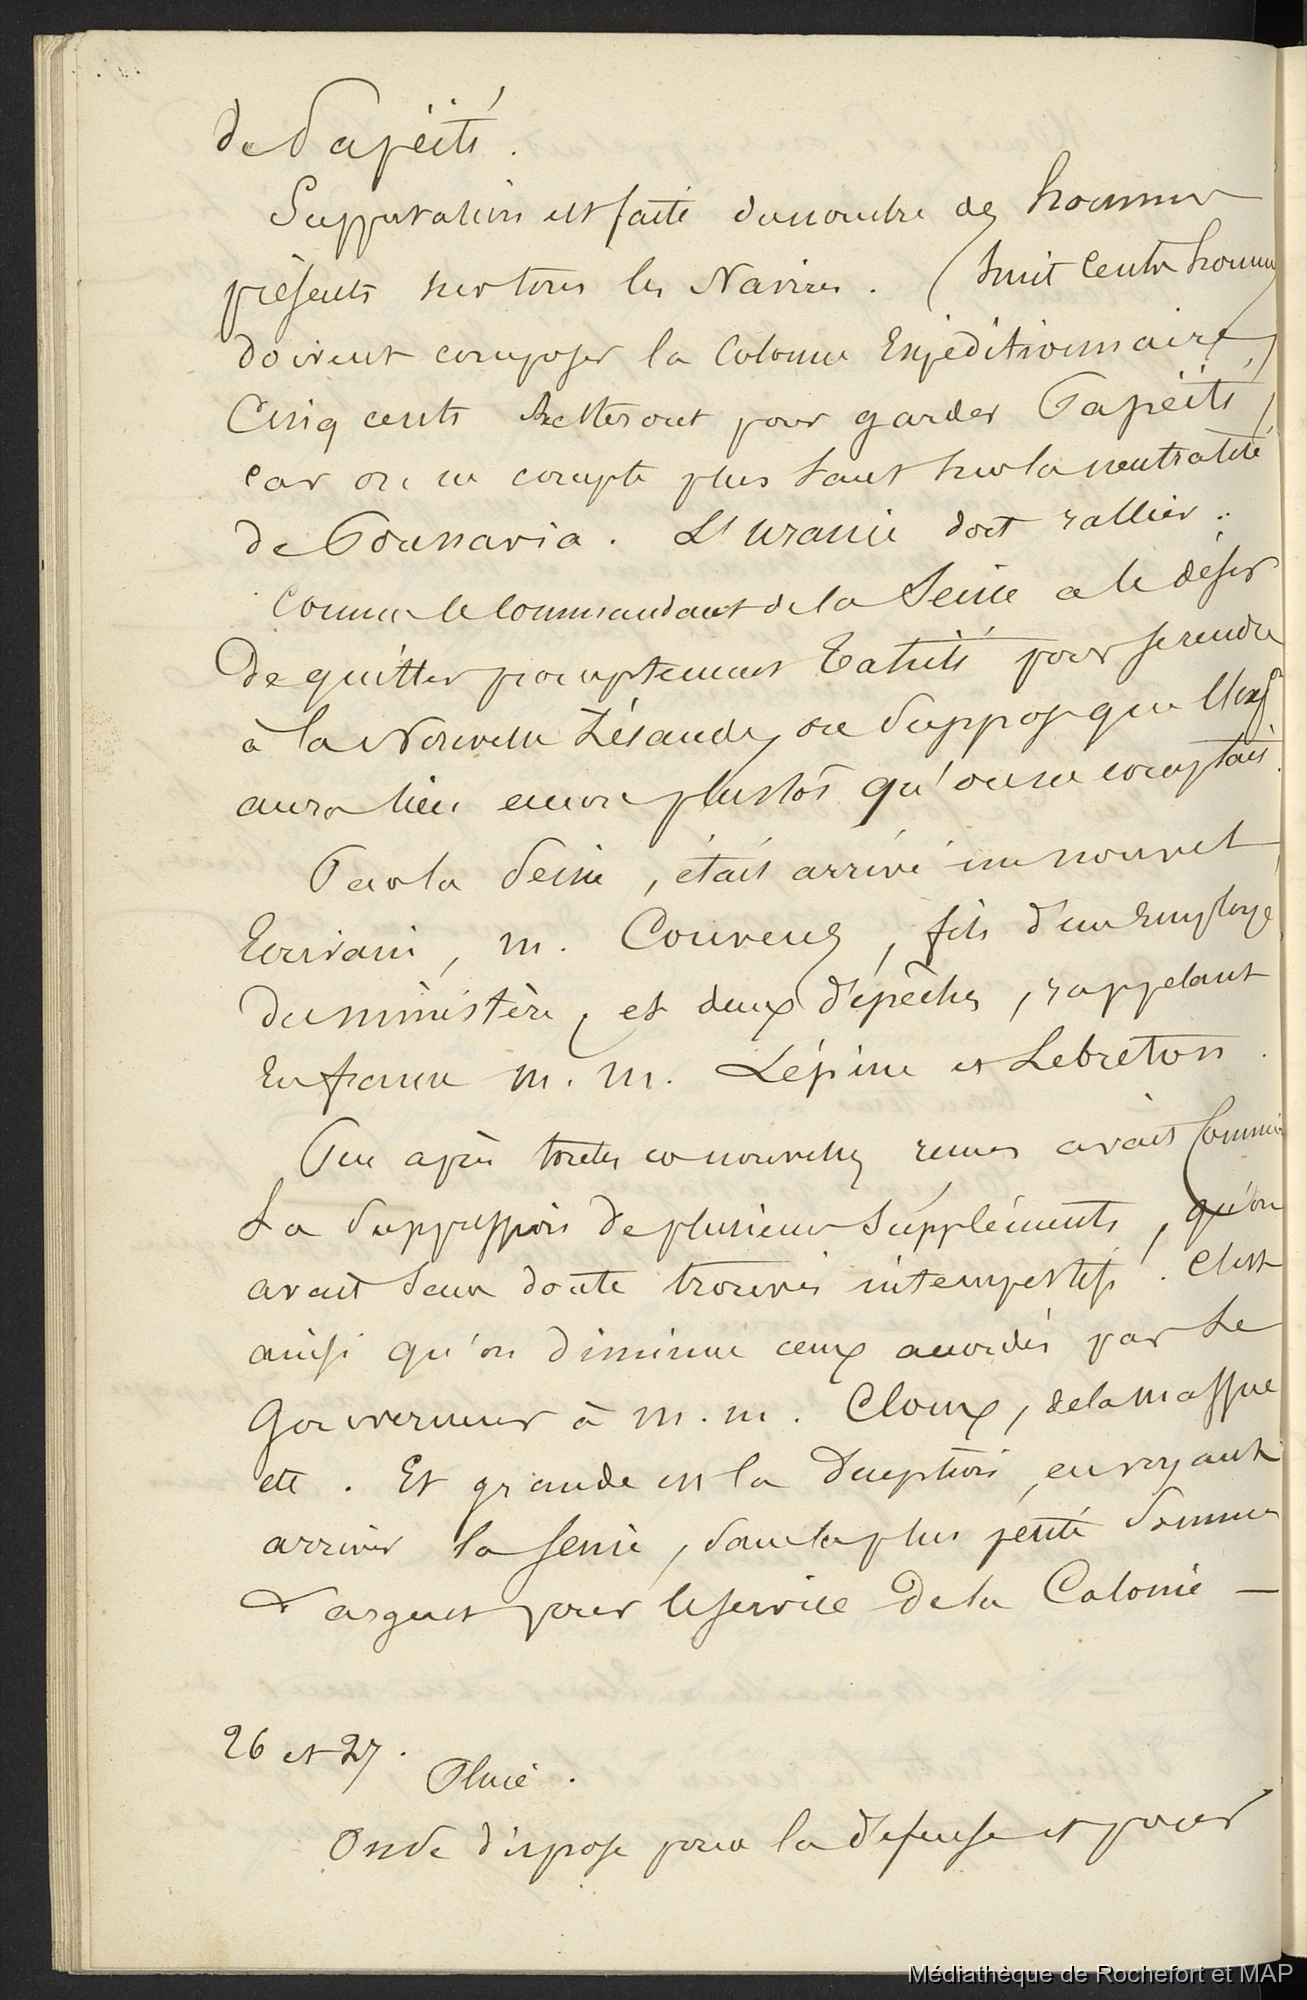 de Papéiti.
Supputation est faite du nombre des hommes
présents sur tous les Navires. (huit cents hommes
doivent composer la Colonne Expéditionnaire,)
Cinq cents resteront pour garder Papéiti,
car on ne compte plus tant sur la neutralité
de Pounavia. L'Uranie doit rallier.
Comme le Commandant de la Seine a le désir
de quitter promptement Tahiti pour se rendre
à la Nouvelle Zélande, on suppose que
aura lieu encore plustôt qu'on ne comptait.
Par la Seine, était arrivé un nouvel
Ecrivain, M. Couveux, fils d'un Employé
du ministère, et deux dépêches, rappelant
En france M. M. Lépine et Lebreton.
Peu après toutes ces nouvelles remises avait
La suppression de plusieurs suppléments, qu'on
avait sans doute trouvés intempestifs. C'est
ainsi qu'on diminue ceux accordés par Le
Gouverneur à M. M. Cloux, delamassue
etc. Et grande est la déception, en voyant
arriver la Seine, sans la plus petite somme
d'argent pour le service de la Colonie —
26 et 27.
Pluie.
On se dispose pour la défense et pour
Médiathèque de Rochefort et MAP